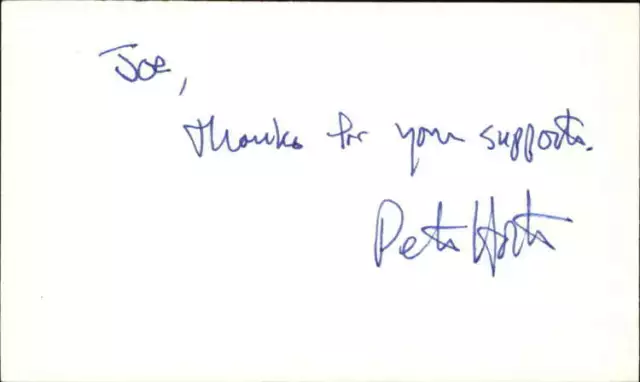 Joe,
thanks for your support.
Peter